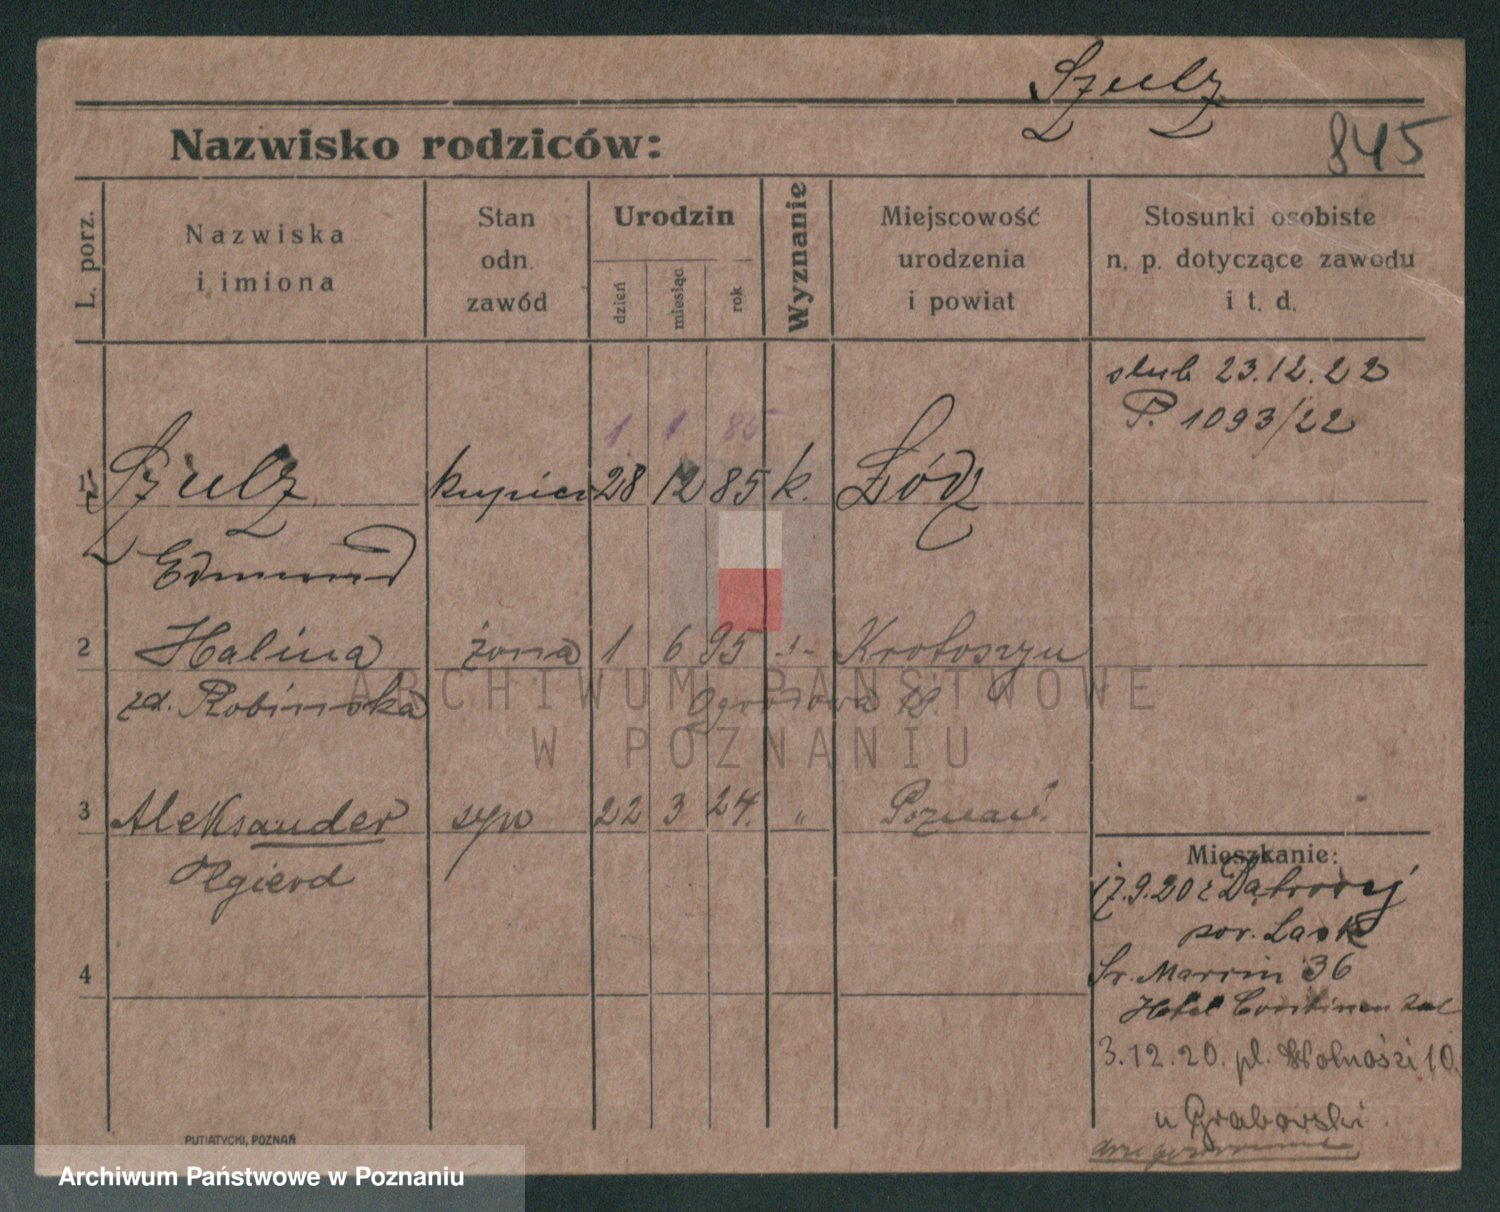 Szulz
845
Nazwisko rodziców:
L. porz.
Nazwiska
i imiona
Stan
odn.
zawód
Urodzin
dzień
miesiąc
rok
Wyznanie
Miejscowość
urodzenia
i powiat
Stosunki osobiste
n. p. dotyczące zawodu
i t. d.
ślub 23.12.22
P. 1093/22
1 1 85
1 Szulz kupiec 28 12 85 k. Łódź
Edmund
2 Halina żona 1 6 95 -"- Krotoszyn
zd. Robińska
3 Aleksander syn 22 3 24. " Poznań
Olgierd
4
Mieszkanie:
17.9.20 z Dąbrowy
pow. Łask
Św. Marcin 36
Hotel Continental
3.12.20. pl. Wolności 10.
u Grabowski.
PUTIATYCKI, POZNAŃ
ARCHIWUM PAŃSTWOWE
W POZNANIU
Archiwum Państwowe w Poznaniu